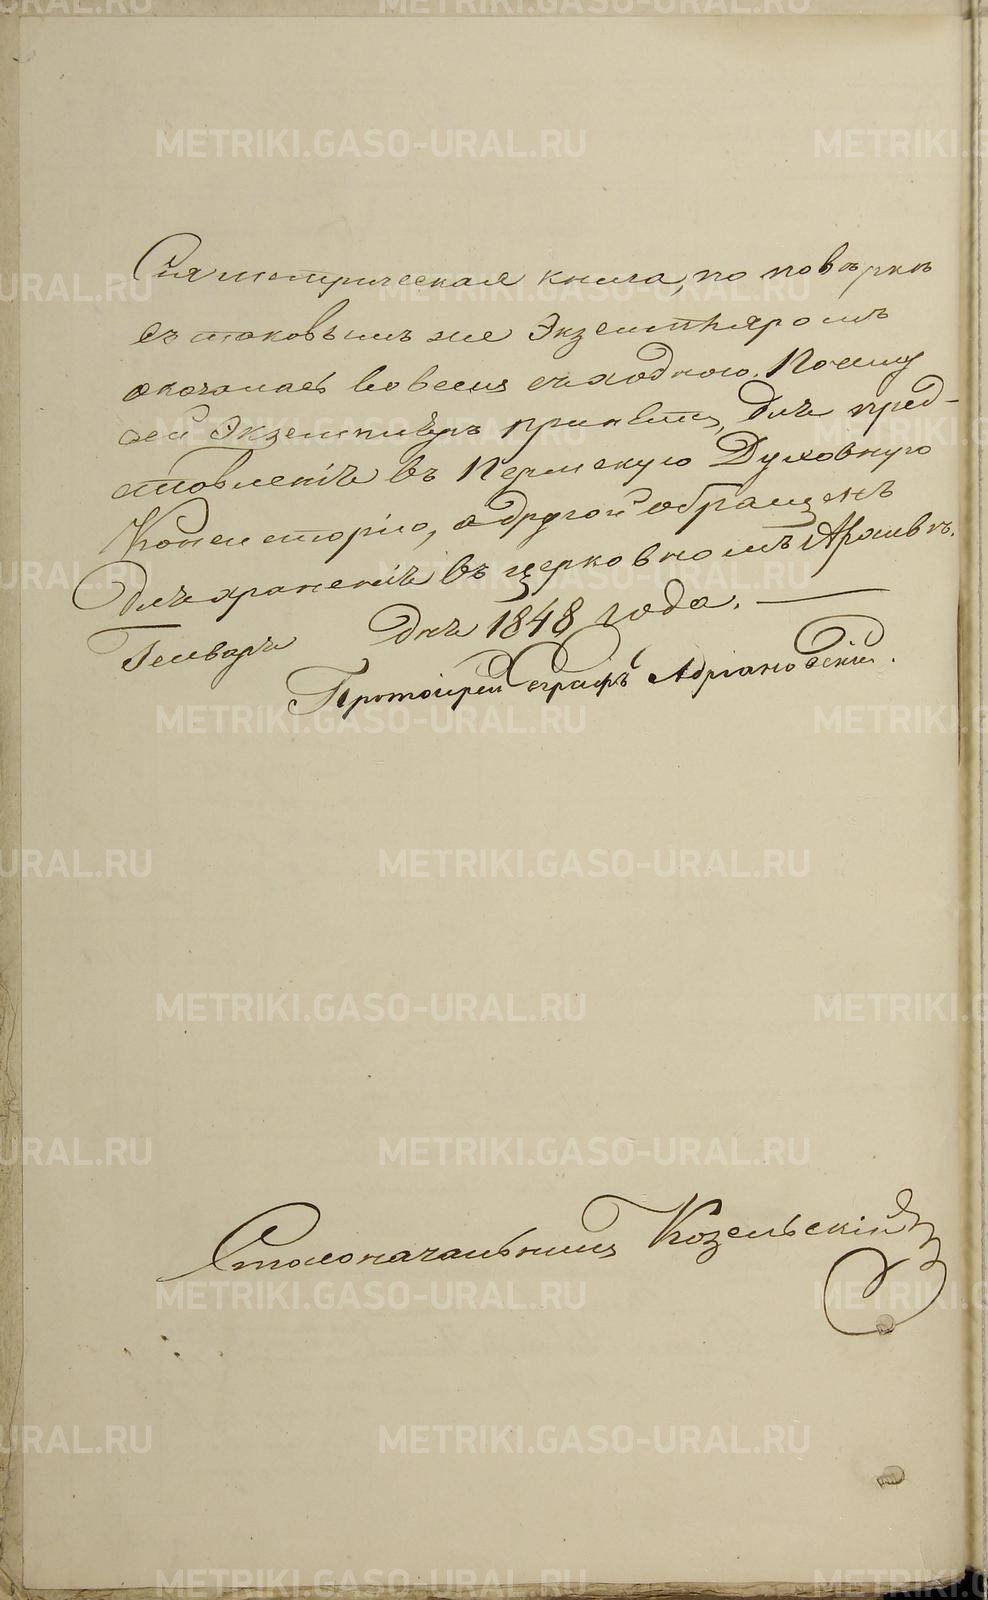 Сія метрическая книга, по повѣркѣ
съ таковымъ же Экземпляромъ
оказалась во всемъ сходною. Почему
сей Экземпляръ принятъ, для пред-
ставленія въ Пермскую Духовную
Консисторію, а другой обращенъ
для храненія въ церковномъ Архивѣ.
Генваря дня 1848 года.
Протоіерей Сераѳимъ Адріановскій.
Столоначальникъ Козельскій
METRIKI.GASO-URAL.RU